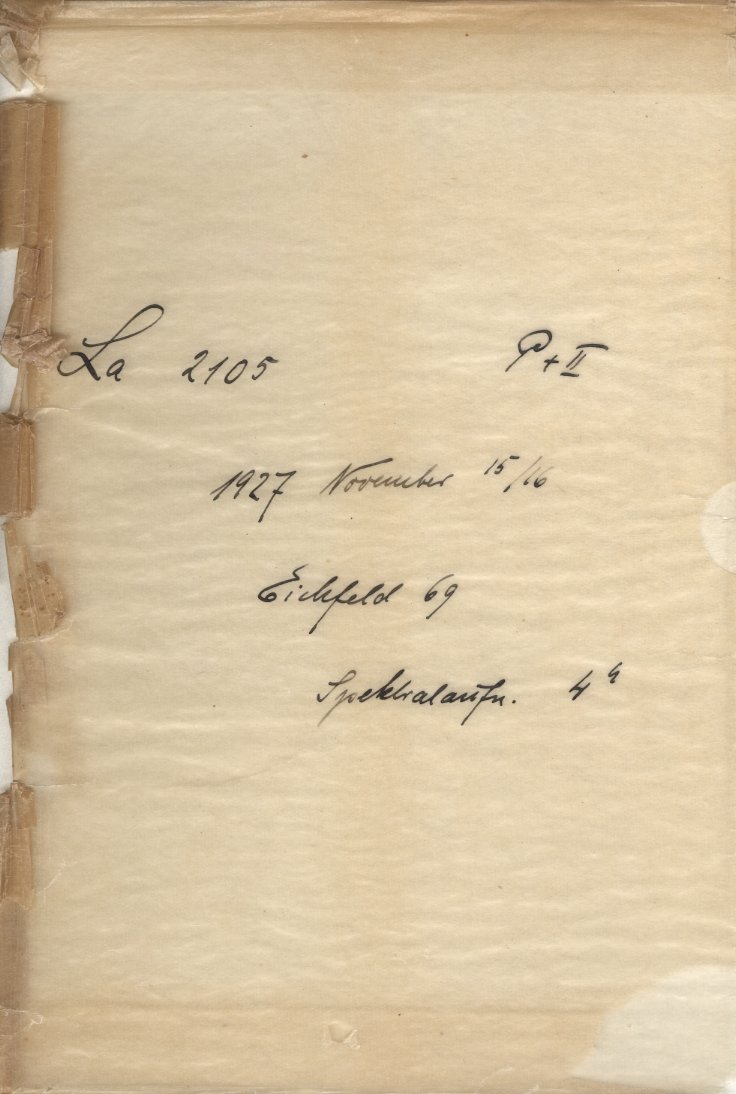 La 2105 P+II
1927 November 15/16
Eichfeld 69
Spektralaufn. 4h